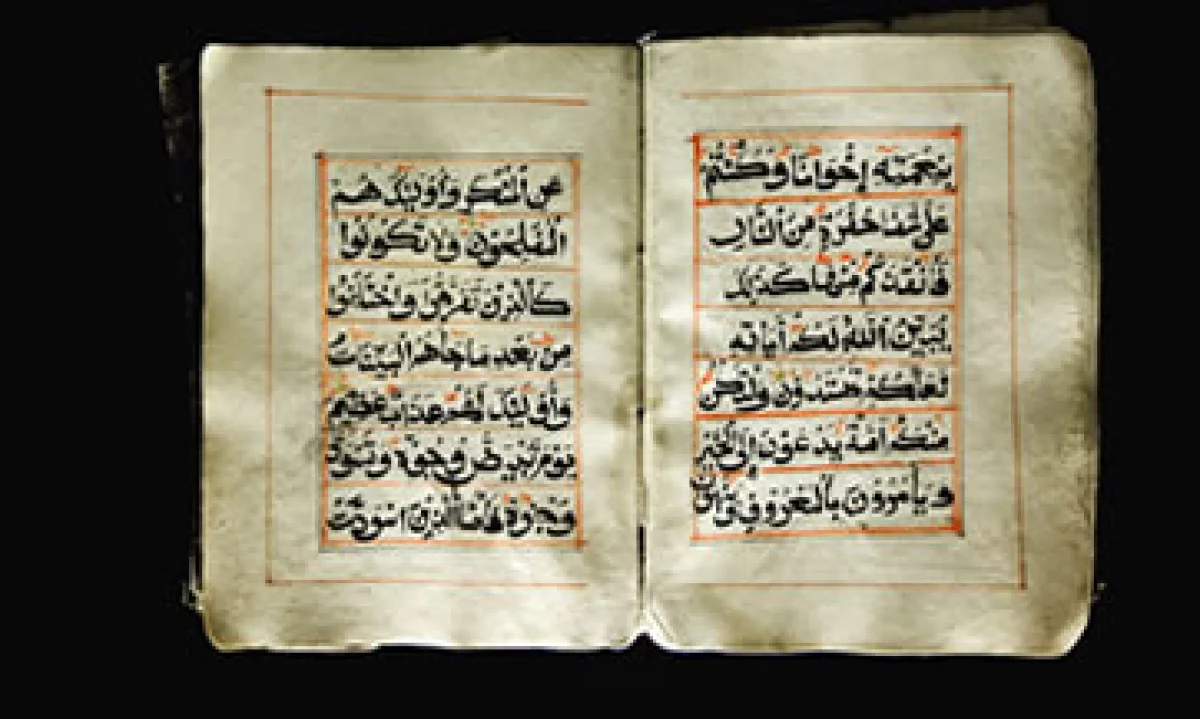 بِنِعْمَتِهِ إِخْوَانًا وَكُنْتُمْ
عَلَى شَفَا حُفْرَةٍ مِنَ النَّارِ
فَأَنْقَذَكُمْ مِنْهَا كَذَلِكَ
يُبَيِّنُ اللَّهُ لَكُمْ آيَاتِهِ
لَعَلَّكُمْ تَهْتَدُونَ وَلْتَكُنْ
مِنْكُمْ أُمَّةٌ يَدْعُونَ إِلَى الْخَيْرِ
وَيَأْمُرُونَ بِالْمَعْرُوفِ وَيَنْهَوْنَ
عَنِ الْمُنْكَرِ وَأُولَئِكَ هُمُ
الْمُفْلِحُونَ وَلَا تَكُونُوا
كَالَّذِينَ تَفَرَّقُوا وَاخْتَلَفُوا
مِنْ بَعْدِ مَا جَاءَهُمُ الْبَيِّنَاتُ
وَأُولَئِكَ لَهُمْ عَذَابٌ عَظِيمٌ
يَوْمَ تَبْيَضُّ وُجُوهٌ وَتَسْوَدُّ
وُجُوهٌ فَأَمَّا الَّذِينَ اسْوَدَّتْ